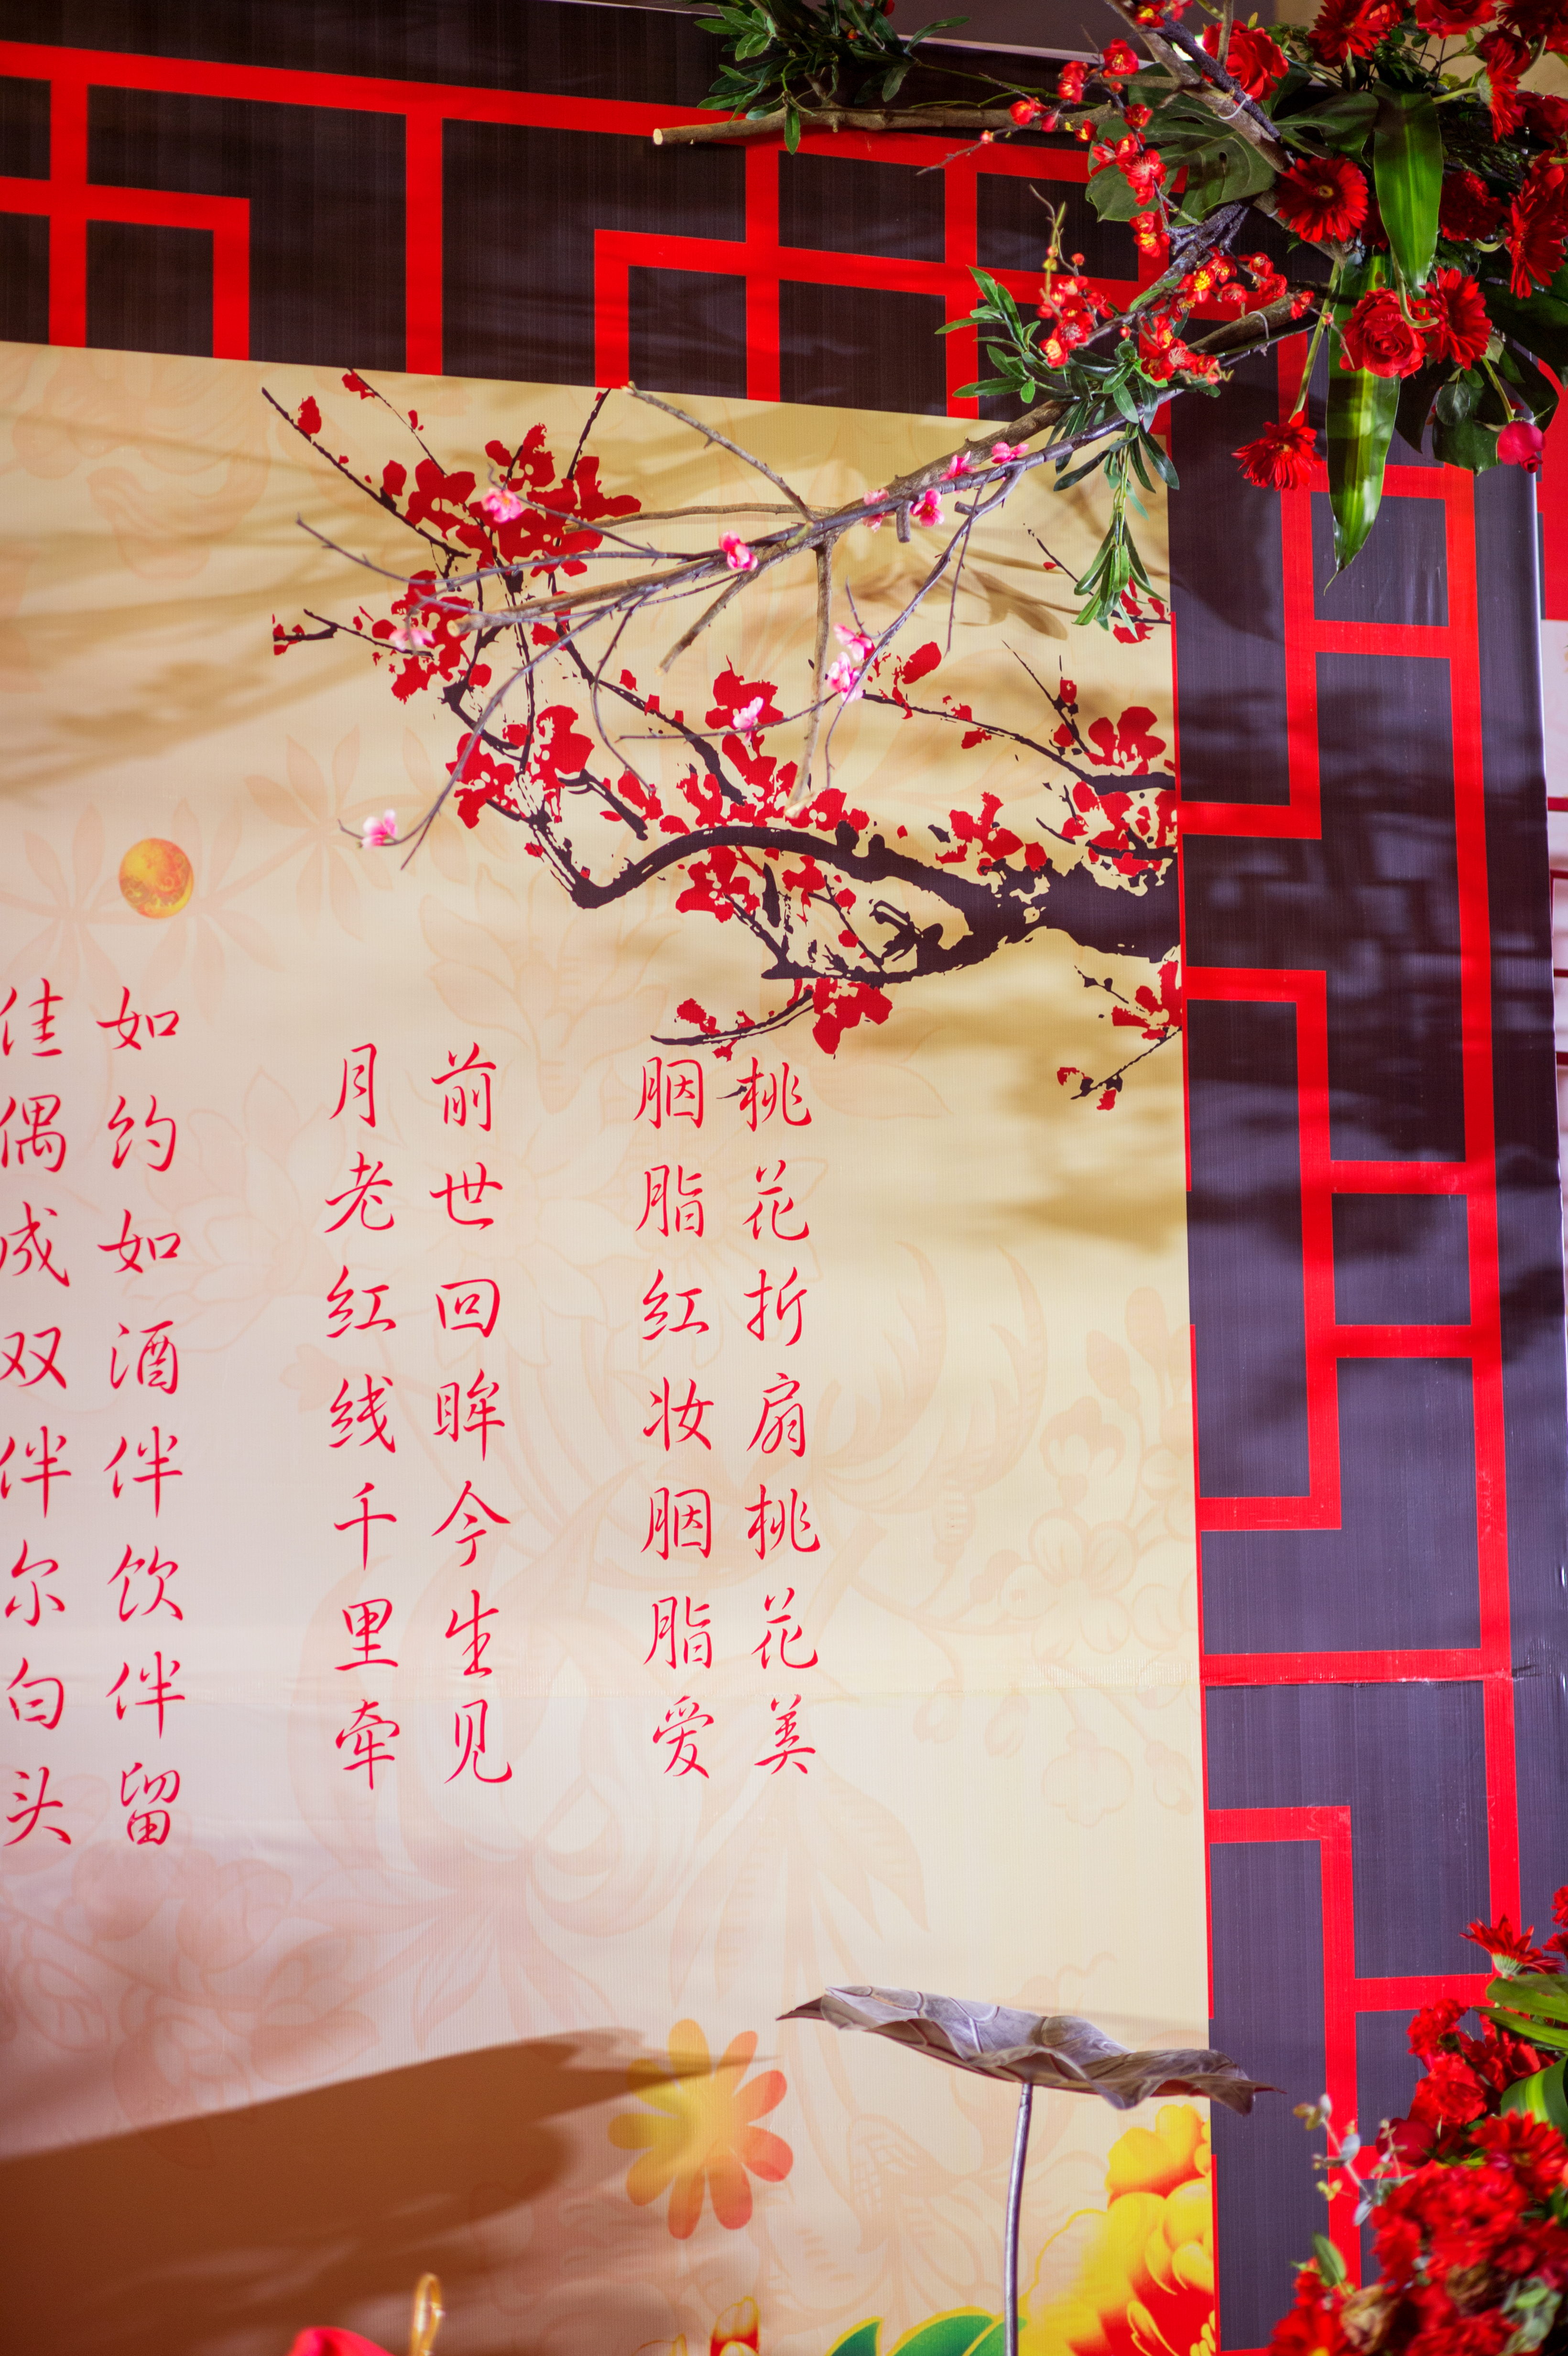 桃花折扇桃花美
胭脂红妆胭脂爱
前世回眸今生见
月老红线千里牵
如约如酒伴饮伴留
佳偶成双伴尔白头